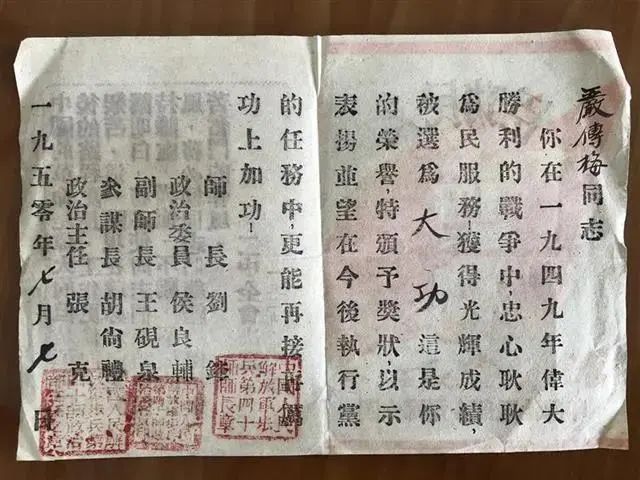 嚴傳梅同志
你在一九四九年偉大
勝利的戰爭中，忠心耿耿
為民服務！獲得光輝成績，
被選為大功這是你
的榮譽，特頒予獎狀，以示
表揚並望在今後執行黨
的任務中，更能再接
功上加功！
師長劉
政治委員侯良輔
副師長王硯泉
參謀長胡尚禮
政治主任張克
一九五〇年七月七日